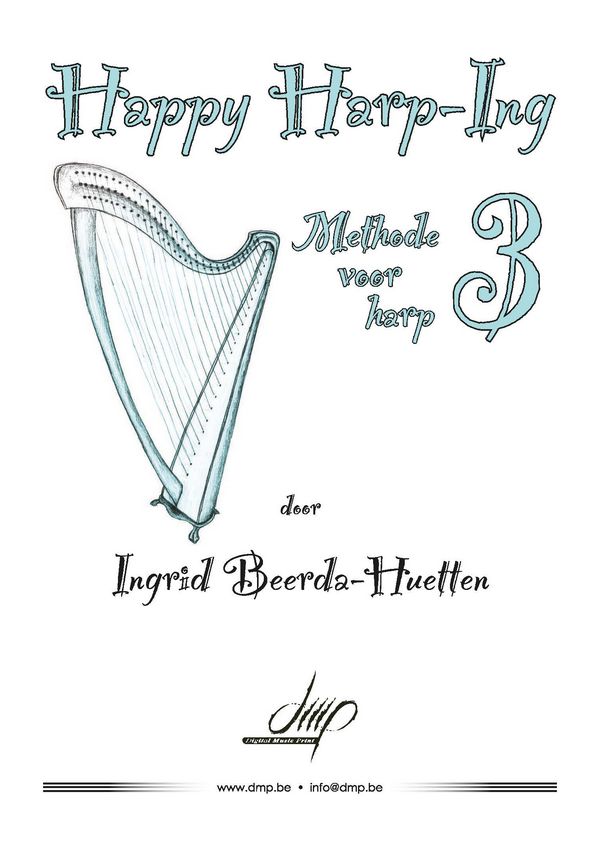 Happy Harp-Ing
Methode 3
voor
harp
door
Ingrid Beerda-Huetten
dmp
Digital Music Print
www.dmp.be • info@dmp.be